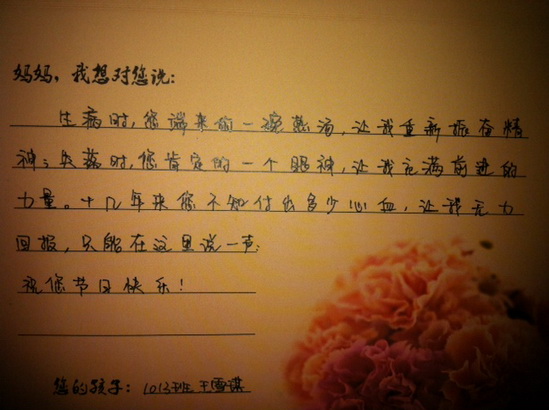 妈妈，我想对您说：
生病时，您端来的一碗热汤，让我重新振奋精
神；失落时，您肯定的一个眼神，让我充满前进的
力量。十几年来您不知付出多少心血，让我无力
回报，只能在这里说一声：
祝您节日快乐！
您的孩子：1013班 王雪谋